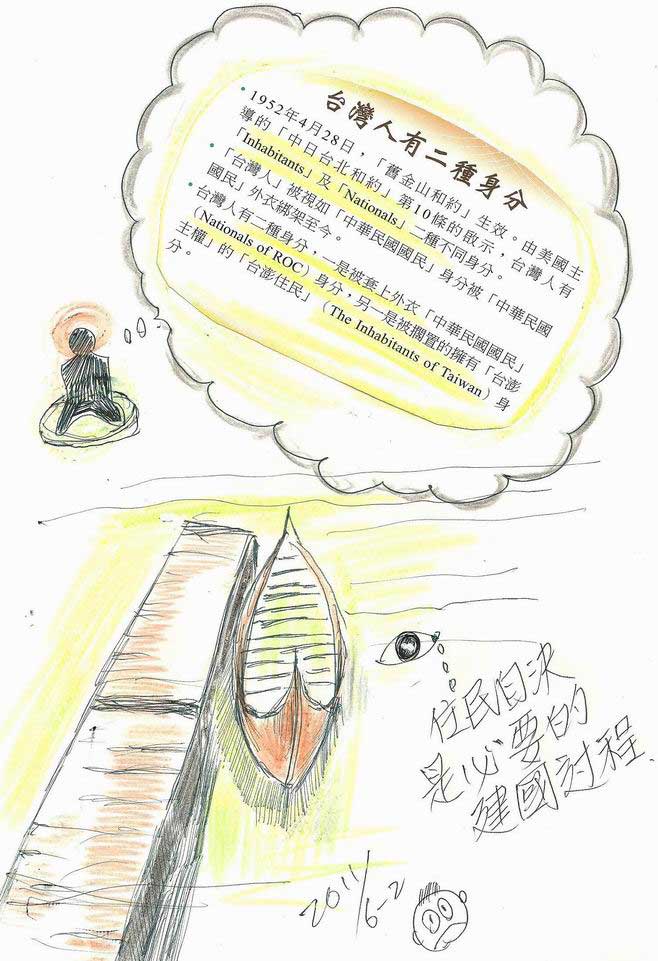 台灣人有二種身分
•1952年4月28日，「舊金山和約」生效。由美國主
導的「中日台北和約」第10條的啟示，台灣人有
「Inhabitants」及「Nationals」二種不同身分。
•「台灣人」被視如「中華民國國民」身分被「中華民國
國民」外衣綁架至今。
•台灣人有二種身分，一是被套上外衣「中華民國國民」
（Nationals of ROC）身分，另一是被擱置的擁有「台澎
主權」的「台澎住民」（The Inhabitants of Taiwan）身
分。
住民自決
是必要的
建國过程.
2011/6-2